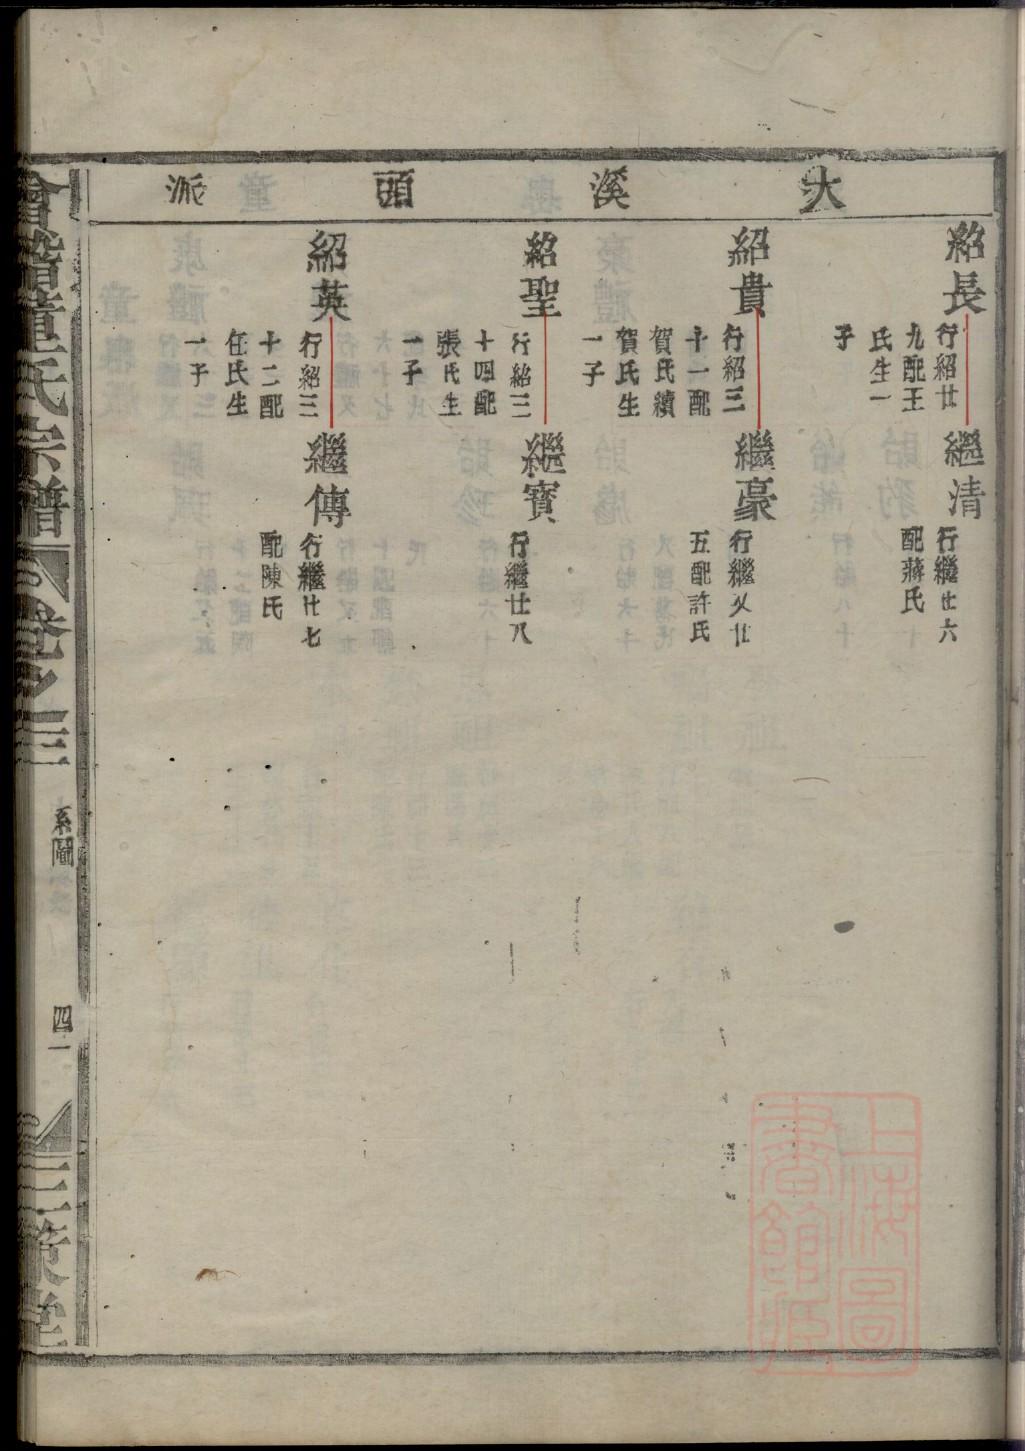 大溪頭派
紹長
行紹廿
九配王
氏生一
子
繼清
行繼廿六
配蔣氏
紹貴
行紹三
十一配
賀氏續
賀氏生
一子
繼豪
行繼又廿
五配許氏
紹聖
行紹三
十四配
張氏生
一子
繼寶
行繼廿八
紹英
行紹三
十二配
任氏生
一子
繼傳
行繼廿七
配陳氏
會稽童氏宗譜
卷之三
系圖
四一
三策堂
上海圖
書館藏